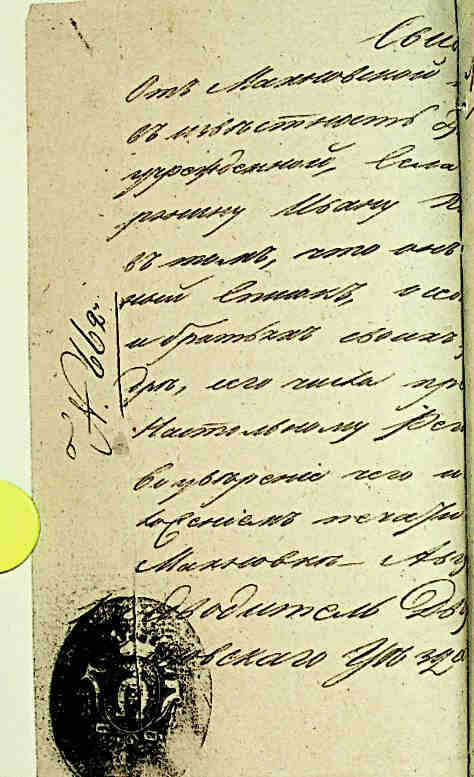 Сви
Отъ Махновской
въ извѣстность
учрежденной, Села
рянину Ивану
въ томъ, что онъ
ный Списокъ, о
и братьяхъ своихъ,
бря, сего числа пр
Настольному Рег
Во увѣреніе чего и
ложеніемъ печати
Махновка
водитель Дв
вскаго Уѣзда